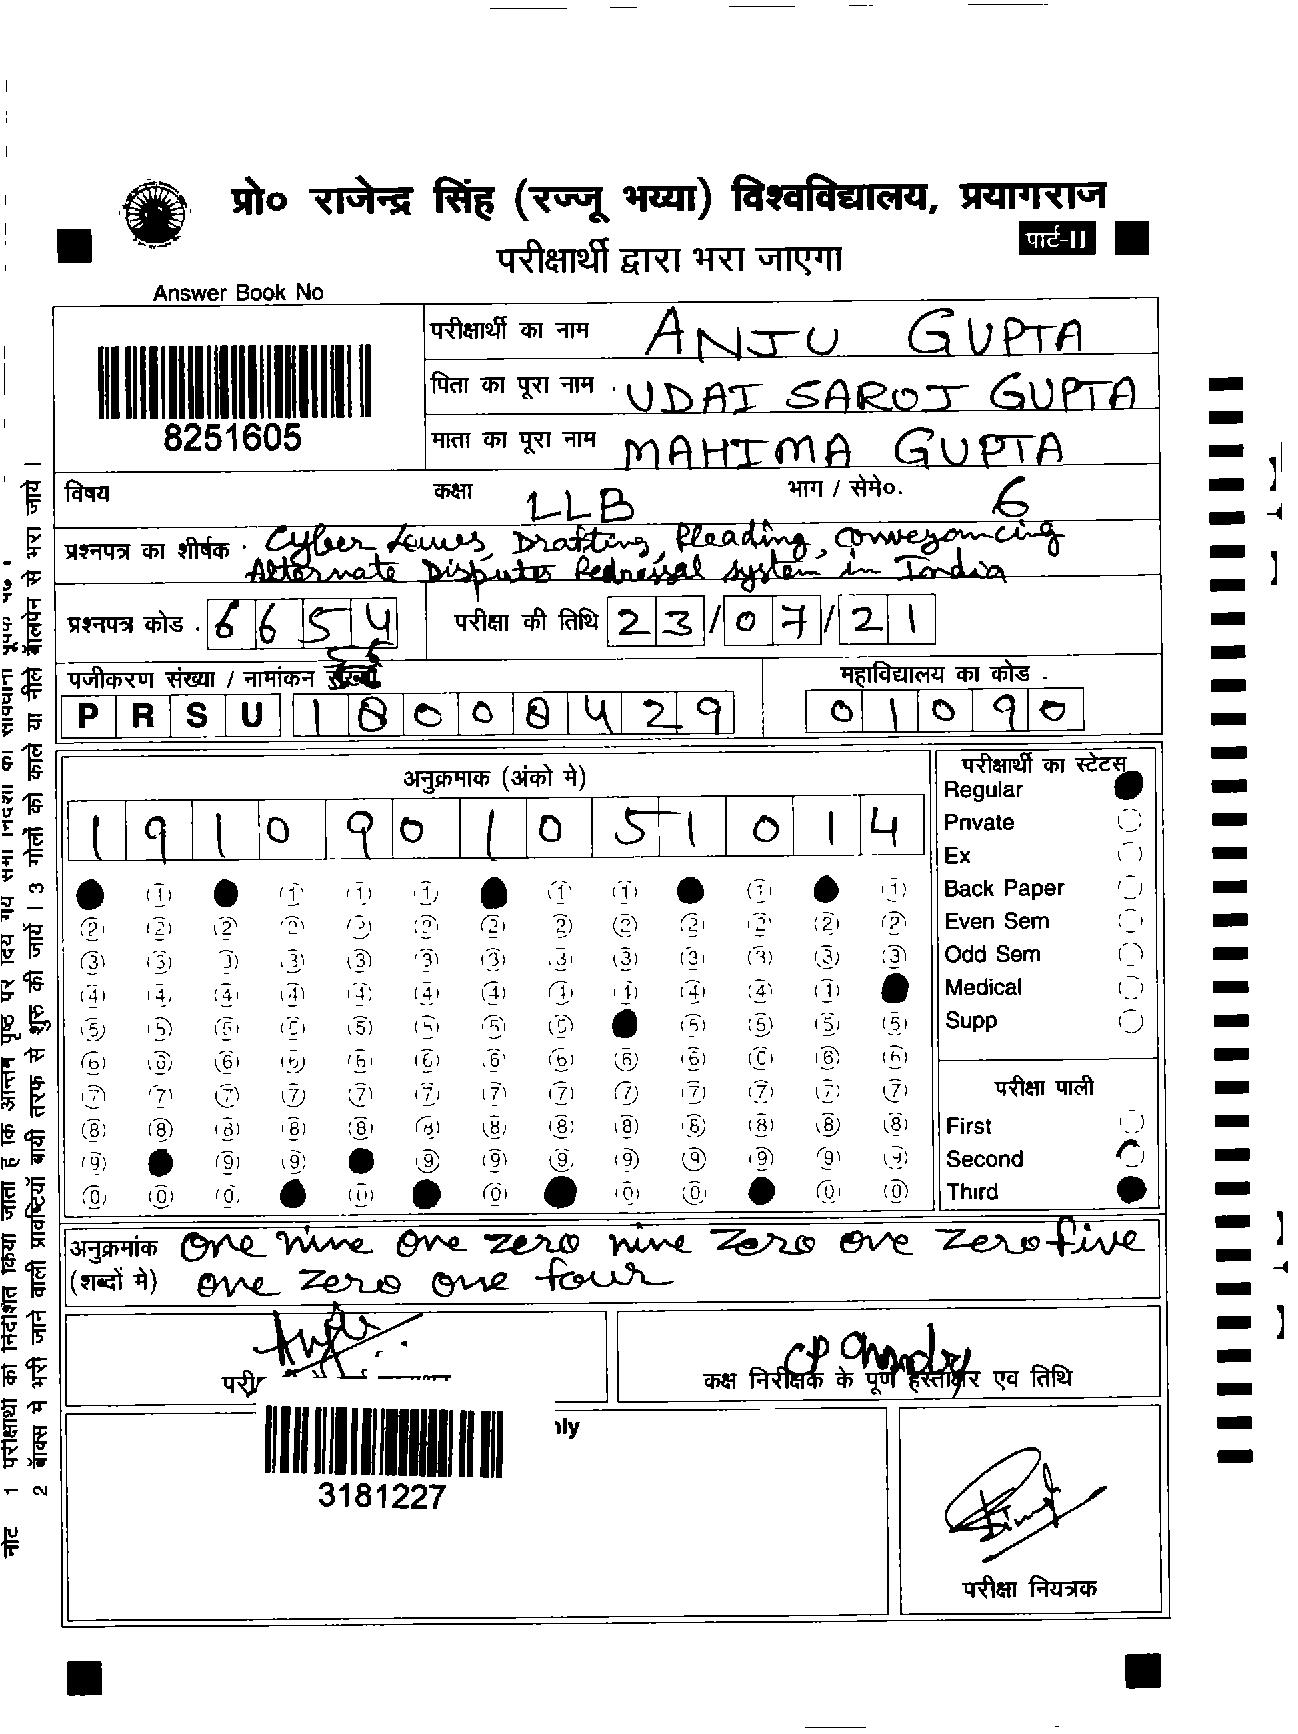 प्रो० राजेन्द्र सिंह (रज्जू भय्या) विश्वविद्यालय, प्रयागराज
पार्ट-II
परीक्षार्थी द्वारा भरा जाएगा
Answer Book No
8251605
परीक्षार्थी का नाम ANJU GUPTA
पिता का पूरा नाम UDAI SAROJ GUPTA
माता का पूरा नाम MAHIMA GUPTA
विषय कक्षा LLB भाग / सेमे०. 6
प्रश्नपत्र का शीर्षक Cyber Laws, Drafting, Pleading, Conveyancing
Alternate Disputes Redressal System in India
प्रश्नपत्र कोड 6654 परीक्षा की तिथि 23/07/21
पजीकरण संख्या / नामांकन
PRSU 18008429
महाविद्यालय का कोड
01090
अनुक्रमाक (अंको मे)
1910901051014
परीक्षार्थी का स्टेटस
Regular
Private
Ex
Back Paper
Even Sem
Odd Sem
Medical
Supp
परीक्षा पाली
First
Second
Third
अनुक्रमांक one nine one zero nine zero one zero five
(शब्दों मे) one zero one four
कक्ष निरीक्षक के पूर्ण हस्ताक्षर एव तिथि
3181227
परीक्षा नियत्रक
नोट 1 परीक्षार्थी को निर्देशित किया जाता है कि अन्तिम पृष्ठ पर दिये गये सभी निर्देशों का सावधानी
2 बॉक्स मे भरी जाने वाली प्रविष्टियाँ बायी तरफ से शुरु की जायें । 3 गोलों को काले या नीले बॉलपेन से भरा जाये ।